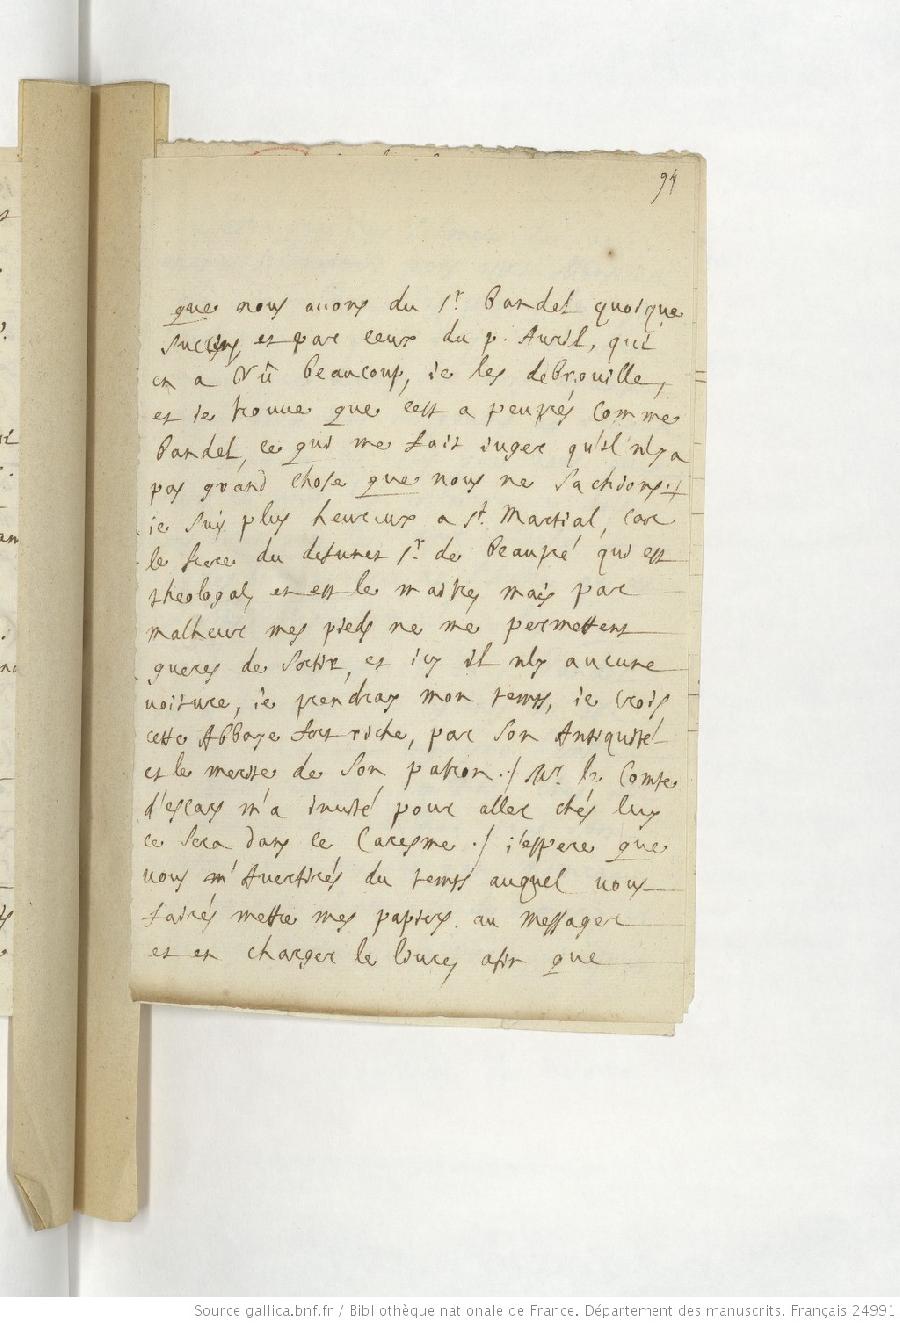 94
que nous auons du Sr. Bandel quoique
succins, et par ceux du p. Auril, quil
en a vû beaucoup, ie les debrouille,
et ie trouue que cest a peuprés comme
Bandel, ce qui me fait iuger qu'il n'ÿ a
pas grand chose que nous ne sachions. +
ie suis plus heureux a St. Martial, car
le frere du defunct Sr. de Beaupré qui est
theologal, en est le maitre, mais par
malheur mes pieds ne me permettent
gueres de sortir, et icy il nÿ aucune
voiture, ie prendray mon temps, ie crois
cette Abbaye fort riche, par son Antiquité
et le merite de son patron ./ Mr. le Comte
d'escars m'a inuité pour aller chés luy
ce sera dans ce Caresme ./ i'espere que
vous m'Auertirés du temps auquel vous
fairés mettre mes papiers au messager
et en charger le liure, afin que
Source gallica.bnf.fr / Bibliothèque nationale de France. Département des manuscrits. Français 24991